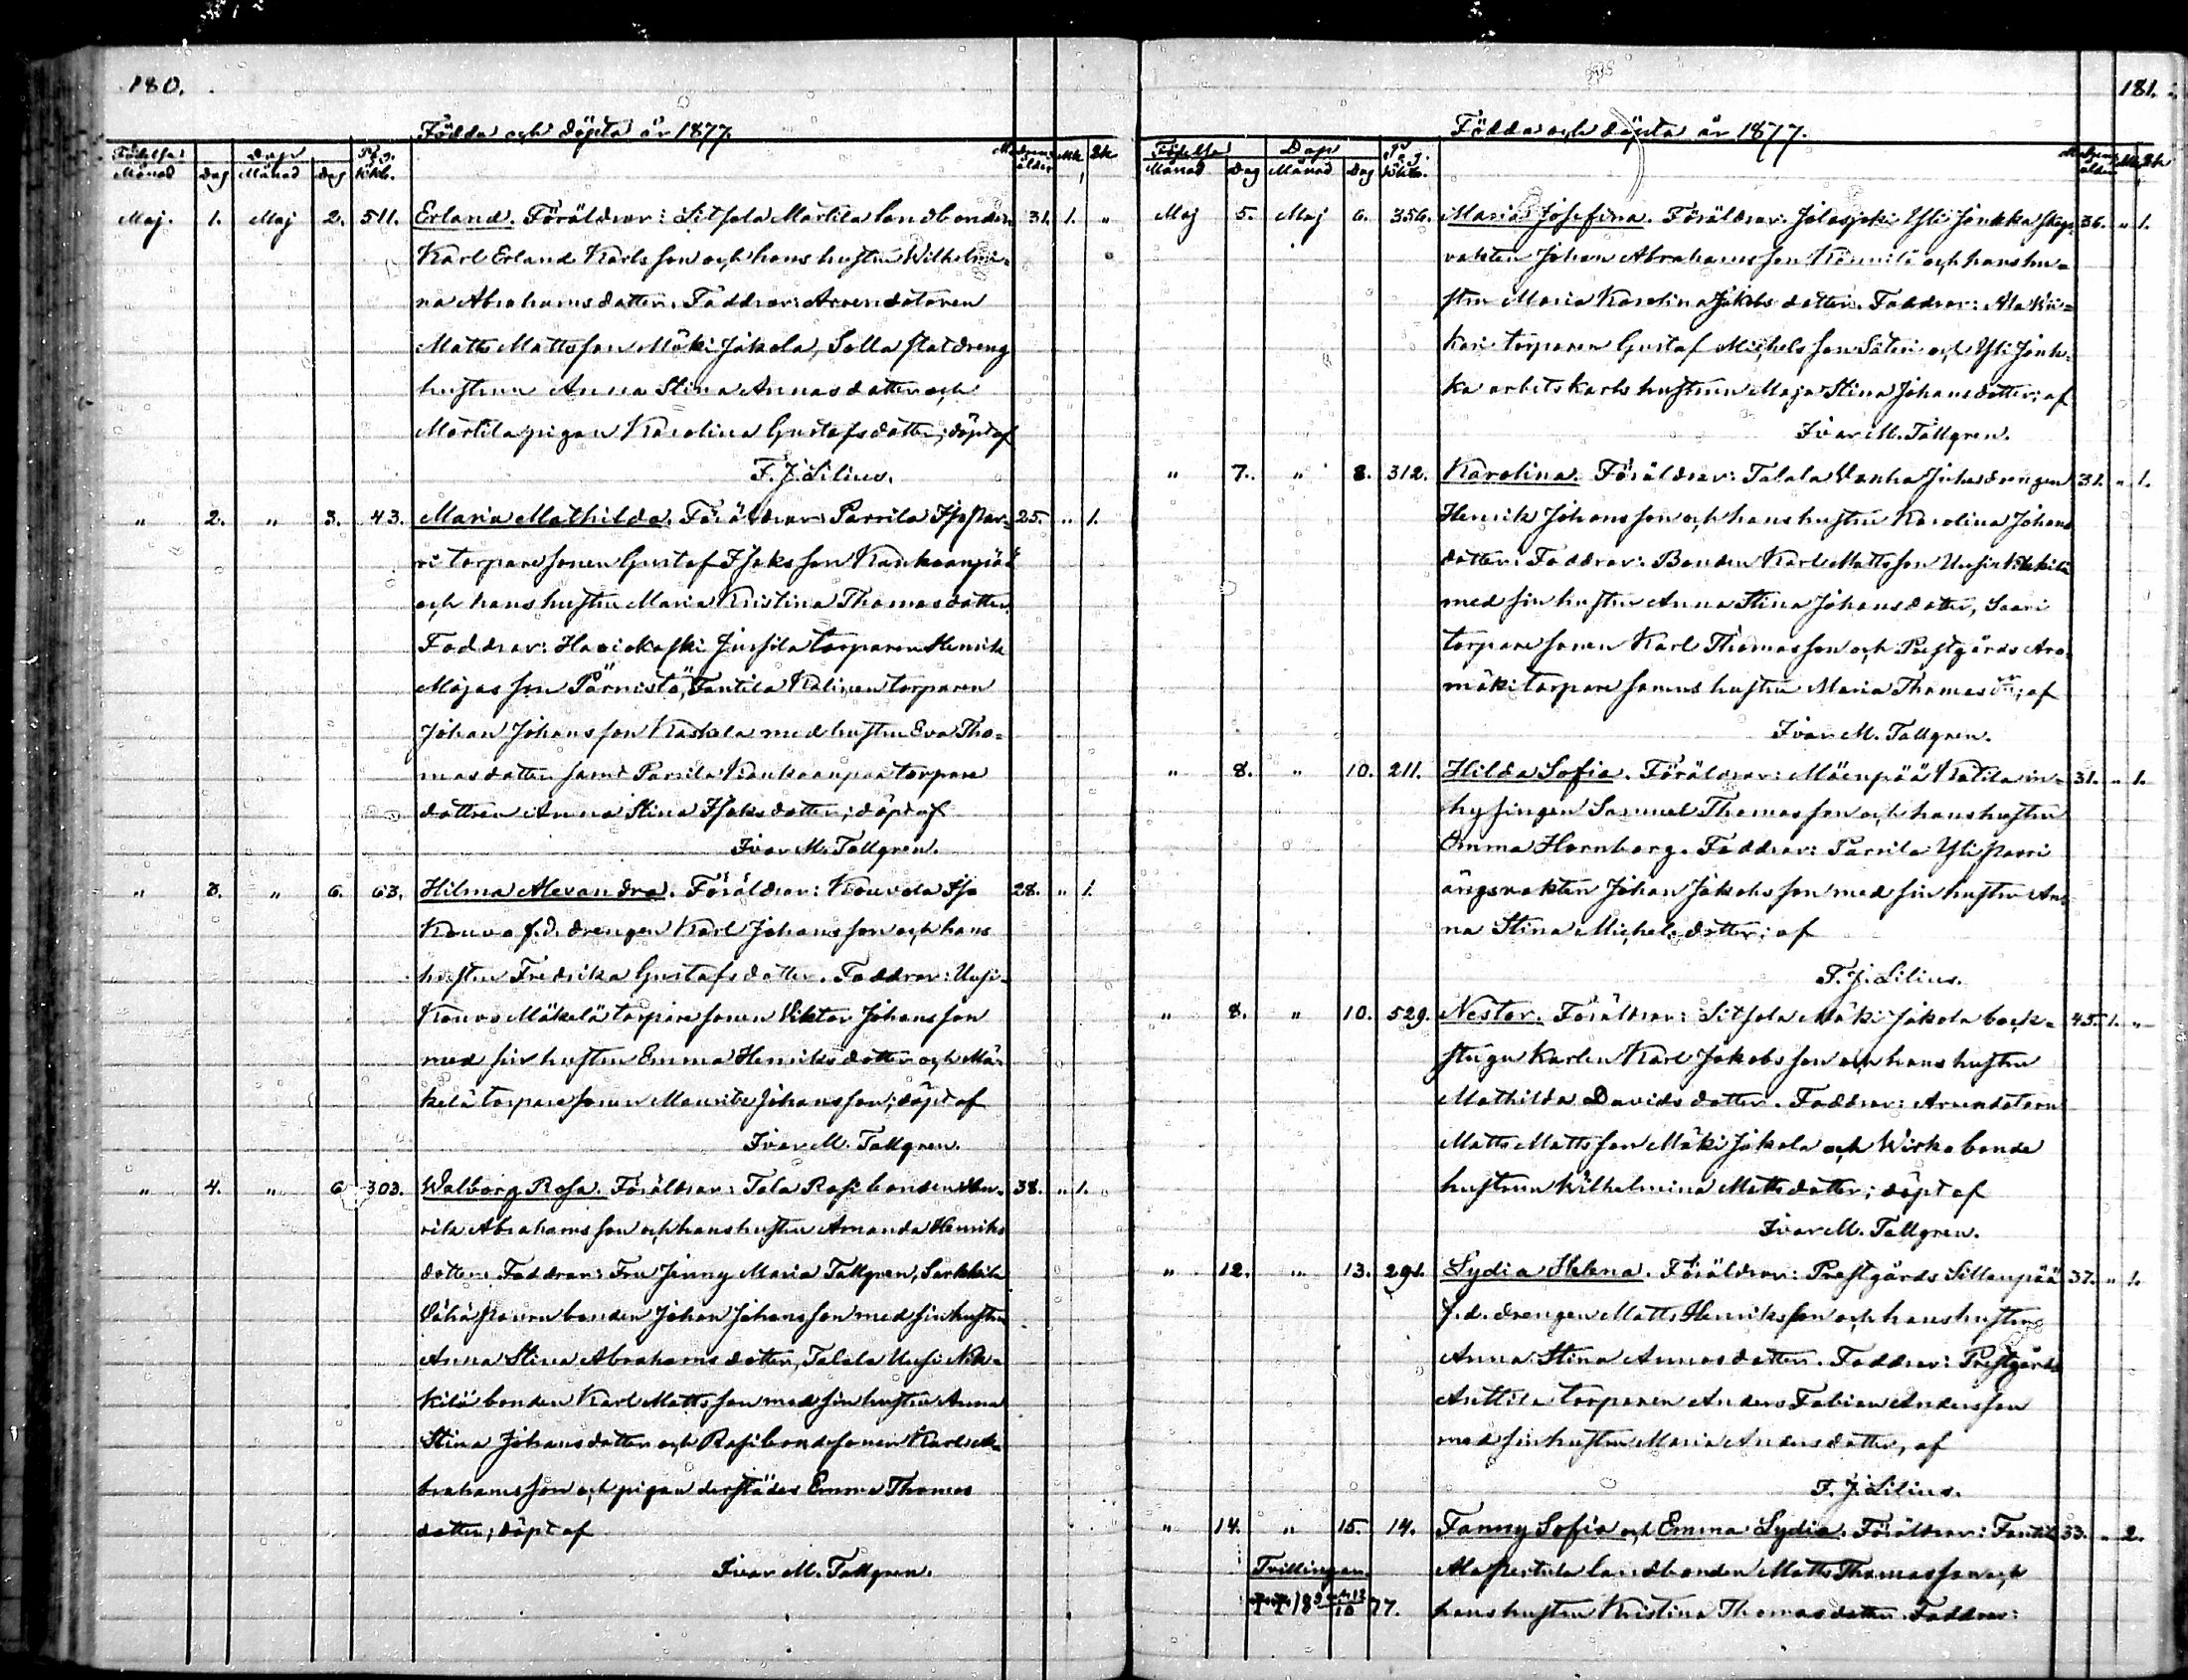 180.
Födda och döpta år 1877.
Födelse Dop Pag.
Månad Dag Månad Dag kkb. ålder Mk Qk
Maj. 1. Maj 2. 511. Erland. Föräldrar: Litsola Martila landbonden 31. 1. "
Karl Erland Karlsson och hans hustru Wilhelmi-
na Abrahamsdotter. Faddrar: Arrendatoren
Matts Mattsson Mäki Jakola, Solla statdreng
hustrun Anna Stina Annasdotter och
Martila pigan Karolina Gustafsdotter; döpt af
F. J. Lilius.
" 2. " 3. 43. Maria Mathilda. Föräldrar: Parrila 25. " 1.
torparesonen Gustaf Isaksson Kankaanpää
och hans hustru Maria Kristina Thomasdotter.
Faddrar: Junnila torparen Henrik
Majasson Pärnistö, Tantila torparen
Johan Johansson Kaskela med hustru Eva Tho-
masdotter samt Parrila Kankaanpää torpare
dottren Anna Stina Isaksdotter; döpt af
Ivar M. Tallgren.
" 3. " 6. 63. Hilma Alexandra. Föräldrar: Kouvola Iso 28. " 1.
Kouvo f.d. drengen Karl Johansson och hans
hustru Fredrika Gustafsdotter. Faddrar: Uusi-
Kouvo Mäkelä torparesonen Viktor Johansson
med sin hustru Emma Henriksdotter och Mä-
kelä torparesonen Maurits Johansson; döpt af
Ivar M. Tallgren.
" 4. " 6. 303. Walborg Rosa. Föräldrar: Tala Rasi bonden Hen- 38. " 1.
rik Abrahamsson och hans hustru Amanda Henriks
dotter. Faddrar: Fru Jenny Maria Tallgren, Sarkkila
bonden Johan Johansson med sin hustru
Anna Stina Abrahamsdotter, Talala Uusi Nik-
kilä bonden Karl Mattsson med sin hustru Anna
Stina Johansdotter och Rasi bondesonen Karl A-
brahamsson och pigan derstädes Emma Thomas
dotter; döpt af
Ivar M. Tallgren.
181.
Födda och döpta år 1877.
Födelse Dop Pag.
Månad Dag Månad Dag kkb. ålder Mk Qk
Maj 5. Maj 6. 356. Maria Josefina. Föräldrar: Yli Jonkka skogs- 36. " 1.
vakten Johan Abrahamsson och hans hu-
stru Maria Karolina Jakobsdotter. Faddrar: Ala
torparen Gustaf Michelsson Säteri och Yli Jonk-
ka arbetskarls hustrun Maja Stina Johansdotter; af
Ivar M. Tallgren.
" 7. " 8. 312. Karolina. Föräldrar: Talala Vanha drengen 31. " 1.
Henrik Johansson och hans hustru Karolina Johans
dotter. Faddrar: Bonden Karl Mattsson Uusi Nikkilä
med sin hustru Anna Stina Johansdotter, Saari
torparesonen Karl Thomasson och Prestgårds Aro-
mäki torparesonens hustru Maria Thomasdr; af
Ivar M. Tallgren.
" 8. " 10. 211. Hilda Sofia. Föräldrar: Mäenpää Katila in- 31. " 1.
hysingen Samuel Thomasson och hans hustru
Emma Hornborg. Faddrar: Parrila Yli
ängsvakten Johan Jakobsson med sin hustru An-
na Stina Michelsdotter; af
F. J. Lilius.
" 8. " 10. 529. Nestor. Föräldrar: Litsola Mäki Jakola back- 45. 1. "
stugu karlen Karl Jakobsson och hans hustru
Mathilda Davidsdotter. Faddrar: Arrendatorn
Matts Mattsson Mäki Jakola och Wirko bonde
hustrun Wilhelmina Mattsdotter; döpt af
Ivar M. Tallgren.
" 12. " 13. 291. Lydia Helena. Föräldrar: Prestgårds Sillanpää 37. " 1.
f.d. drengen Matts Henriksson och hans hustru
Anna Stina Annasdotter. Faddrar: Prestgårds
Anttila torparen Anders Fabian Andersson
med sin hustru Maria Andersdotter, af
F. J. Lilius.
" 14. " 15. 14. Fanny Sofia och Emma Lydia. Föräldrar: 33. " 2.
Tvillingar. landbonden Matts Thomasson och
77. hans hustru Kristina Thomasdotter. Faddrar: